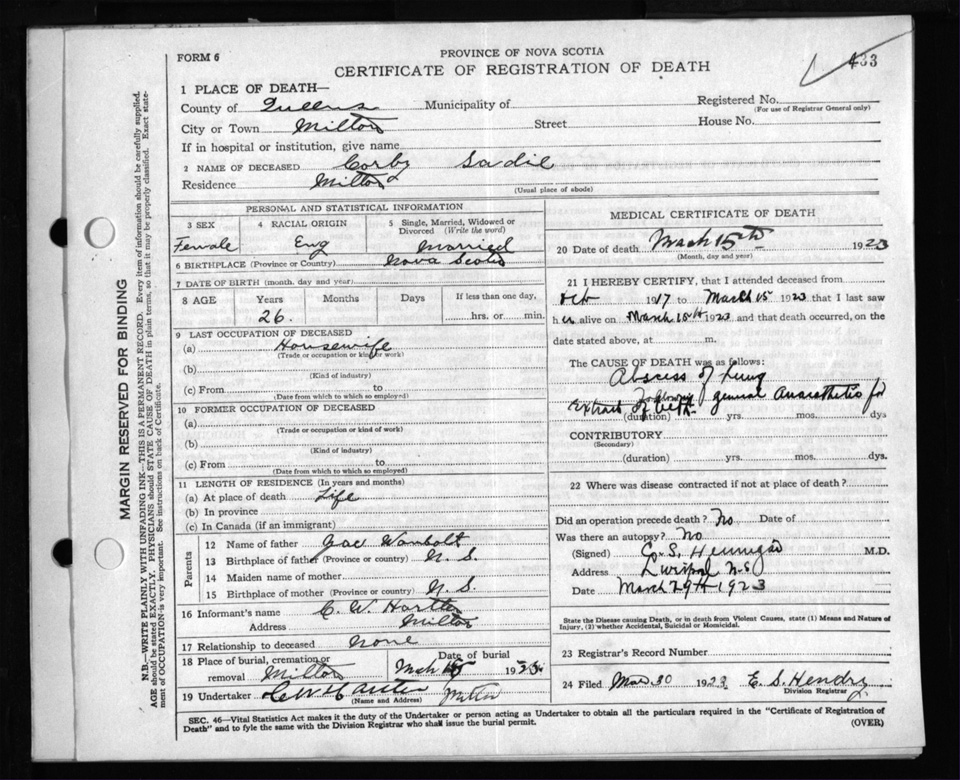 FORM 6
PROVINCE OF NOVA SCOTIA
CERTIFICATE OF REGISTRATION OF DEATH
433
1 PLACE OF DEATH—
County of Queens Municipality of Registered No.
(For use of Registrar General only)
City or Town Milton Street House No.
If in hospital or institution, give name
2 NAME OF DECEASED Corby Sadie
Residence Milton
(Usual place of abode)
PERSONAL AND STATISTICAL INFORMATION
3 SEX 4 RACIAL ORIGIN 5 Single, Married, Widowed or Divorced (Write the word)
Female Eng Married
6 BIRTHPLACE (Province or Country) Nova Scotia
7 DATE OF BIRTH (month, day and year)
8 AGE Years Months Days If less than one day,
26. hrs. or min.
9 LAST OCCUPATION OF DECEASED
(a) Housewife
(Trade or occupation or kind of work)
(b)
(Kind of industry)
(c) From to
(Date from which to which so employed)
10 FORMER OCCUPATION OF DECEASED
(a)
(Trade or occupation or kind of work)
(b)
(Kind of industry)
(c) From to
(Date from which to which so employed)
11 LENGTH OF RESIDENCE (In years and months)
(a) At place of death Life
(b) In province
(c) In Canada (if an immigrant)
Parents
12 Name of father Wambolt
13 Birthplace of father (Province or country) N. S.
14 Maiden name of mother
15 Birthplace of mother (Province or country) N. S.
16 Informant's name C. W. Hartlen
Address Milton
17 Relationship to deceased None
18 Place of burial, cremation or removal Milton Date of burial Mch 1923
19 Undertaker C W Milton
(Name and Address)
MEDICAL CERTIFICATE OF DEATH
20 Date of death March 15th 1923
(Month, day and year)
21 I HEREBY CERTIFY, that I attended deceased from
Oct 1917 to March 15 1923 that I last saw
her alive on March 15th 1923 and that death occurred, on the
date stated above, at m.
The CAUSE OF DEATH was as follows:
Abscess of Lung
following general Anaesthetic for
Extract of teeth (duration) yrs. mos. dys
CONTRIBUTORY
(Secondary)
(duration) yrs. mos. dys.
22 Where was disease contracted if not at place of death?
Did an operation precede death? No Date of
Was there an autopsy? No
(Signed) S. Hennigar M.D.
Address Liverpool N.S.
Date March 29th 1923
State the Disease causing Death, or in death from Violent Causes, state (1) Means and Nature of
Injury, (2) whether Accidental, Suicidal or Homicidal.
23 Registrar's Record Number
24 Filed Mar 30 1923 E. S. Hendry
Division Registrar
SEC. 46—Vital Statistics Act makes it the duty of the Undertaker or person acting as Undertaker to obtain all the particulars required in the "Certificate of Registration of
Death" and to fyle the same with the Division Registrar who shall issue the burial permit. (OVER)
MARGIN RESERVED FOR BINDING
N.B.—WRITE PLAINLY WITH UNFADING INK—THIS IS A PERMANENT RECORD. Every item of information should be carefully supplied.
AGE should be stated EXACTLY. PHYSICIANS should STATE CAUSE OF DEATH in plain terms, so that it may be properly classified. Exact state-
ment of OCCUPATION is very important. See instructions on back of Certificate.